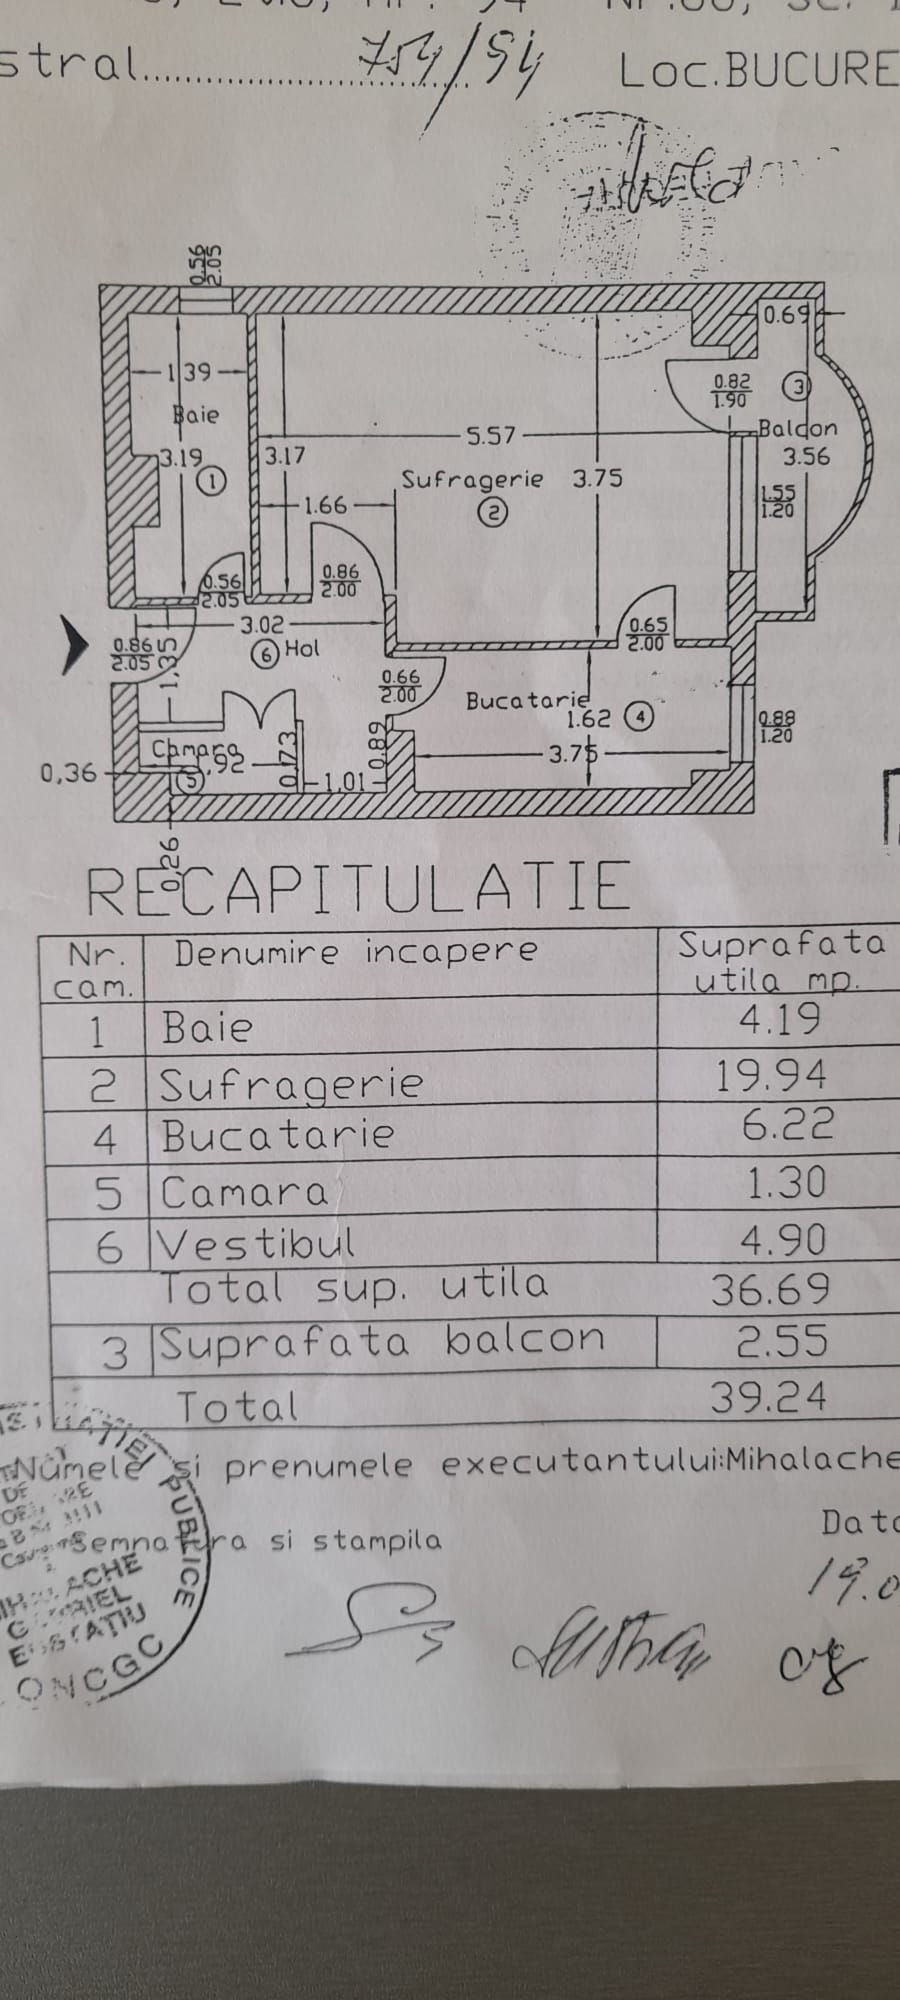 stral.................... 754/94 Loc.BUCURE
0.56
2.05
0.69
1.39
0.82
1.90
3
Baie
5.57
Balcon
3.19
1
3.17
Sufragerie
3.75
3.56
1.66
2
1.55
1.20
0.56
2.05
0.86
2.00
3.02
0.65
2.00
0.86
2.05
1,35
6 Hol
0.66
2.00
Bucatarie
1.62 4
0.88
1.20
Camara
0.89
3.75
0,36
5
,92
1,01
0,26
RECAPITULATIE
Nr. cam. Denumire incapere Suprafata utila mp.
1 Baie 4.19
2 Sufragerie 19.94
4 Bucatarie 6.22
5 Camara 1.30
6 Vestibul 4.90
Total sup. utila 36.69
3 Suprafata balcon 2.55
Total 39.24
Numele si prenumele executantului:Mihalache
Semnatura si stampila
Data
19.0
PUBLICE
ONCGC